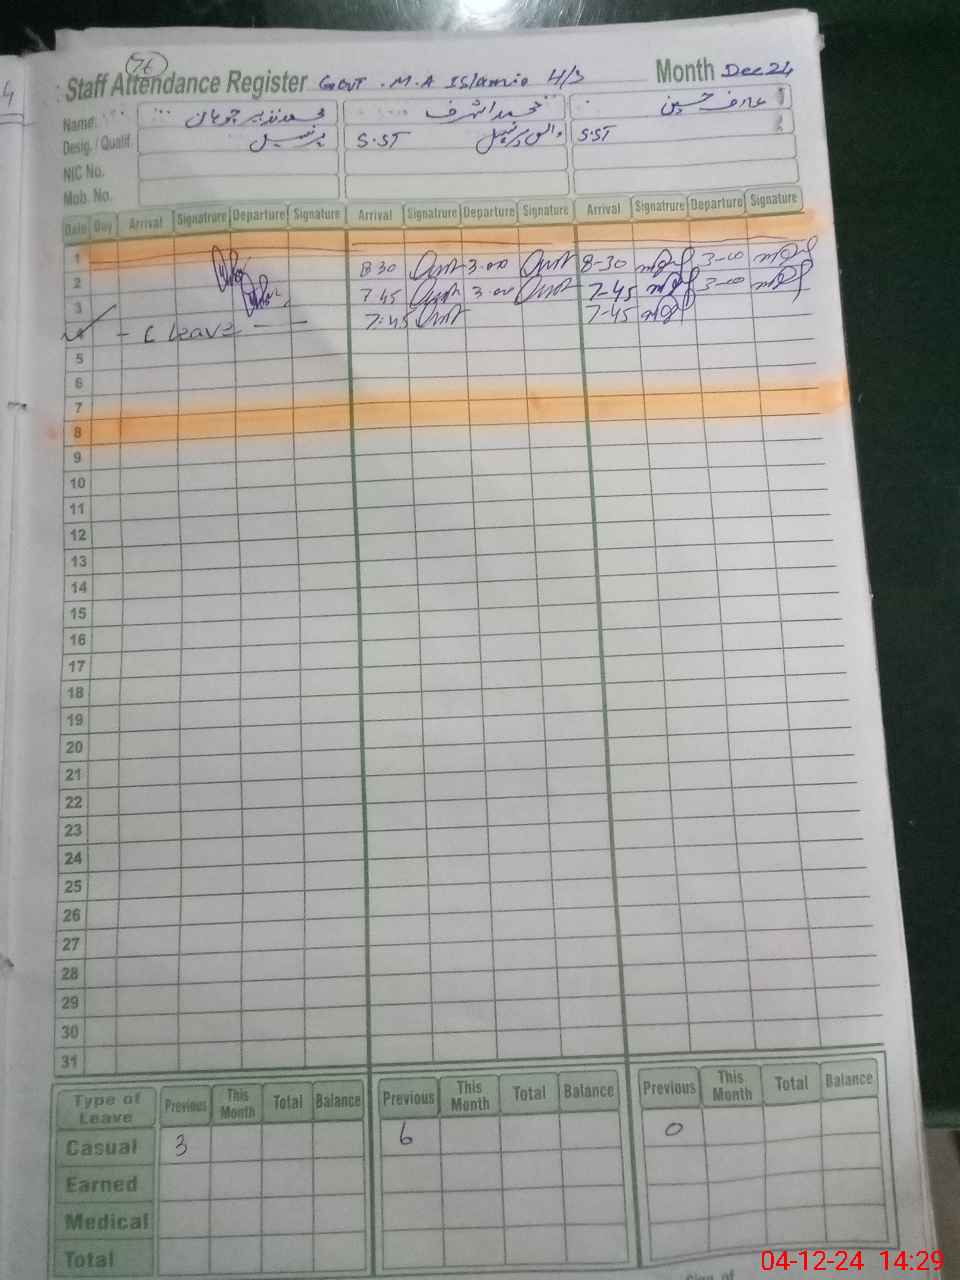 4
76
Staff Attendance Register GOVT . M.A ISlamia H/S Month Dec 24
Name: محمد نذیر چوہان محمد اشرف عارف حسین
Desig. / Qualif. پرنسپل S.ST وائس پرنسپل S.ST
NIC No.
Mob. No.
Date Day Arrival Signatrure Departure Signature Arrival Signatrure Departure Signature Arrival Signatrure Departure Signature
1
2 8 30 3.00 8-30 3-00
3 7 45 3.00 7-45 3-00
4 - C leave - 7:45 7-45
5
6
7
8
9
10
11
12
13
14
15
16
17
18
19
20
21
22
23
24
25
26
27
28
29
30
31
Type of Leave Previous This Month Total Balance Previous This Month Total Balance Previous This Month Total Balance
Casual 3 6 0
Earned
Medical
Total
Sign. of
04-12-24 14:29